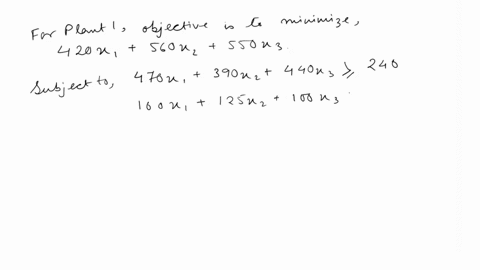 For Plant 1, objective is to minimize,
420x₁ + 560x₂ + 550x₃.
Subject to, 470x₁ + 390x₂ + 440x₃ ⩾ 240
160x₁ + 125x₂ + 100x₃